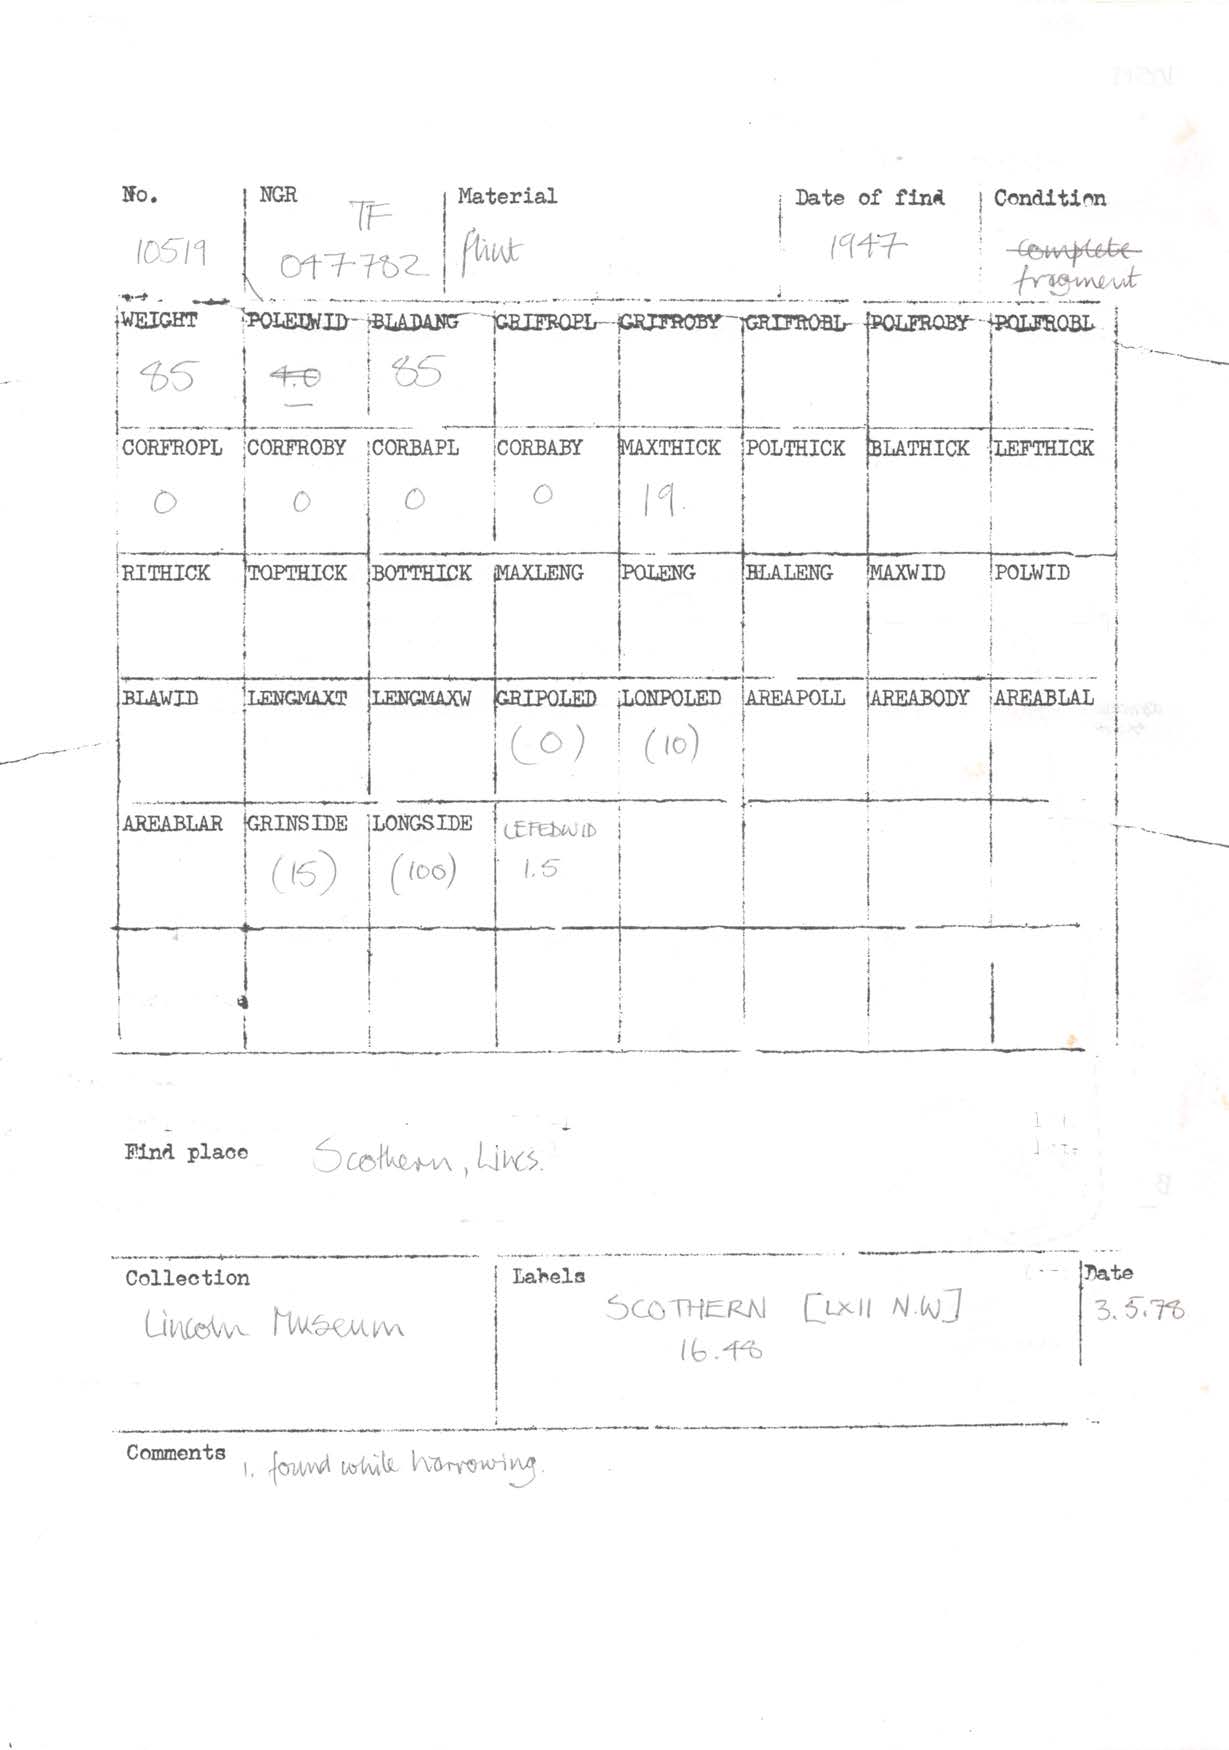 No. NGR Material Date of find Condition
TF
10519 047782 flint 1947 complete
fragment
WEIGHT POLEDWID BLADANG GRIFROPL GRIFROBY GRIFROBL POLFROBY POLFROBL
85 4.0 85
CORFROPL CORFROBY CORBAPL CORBABY MAXTHICK POLTHICK BLATHICK LEFTHICK
0 0 0 0 19.
RITHICK TOPTHICK BOTTHICK MAXLENG POLENG BLALENG MAXWID POLWID
BLAWID LENGMAXT LENGMAXW GRIPOLED LONPOLED AREAPOLL AREABODY AREABLAL
(0) (10)
AREABLAR GRINSIDE LONGSIDE LEFEDWID
(15) (100) 1.5
Find place Scothern, Lincs.
Collection Labels Date
Lincoln Museum SCOTHERN [LXII N.W] 3.5.78
16.48
Comments 1. found while harrowing.